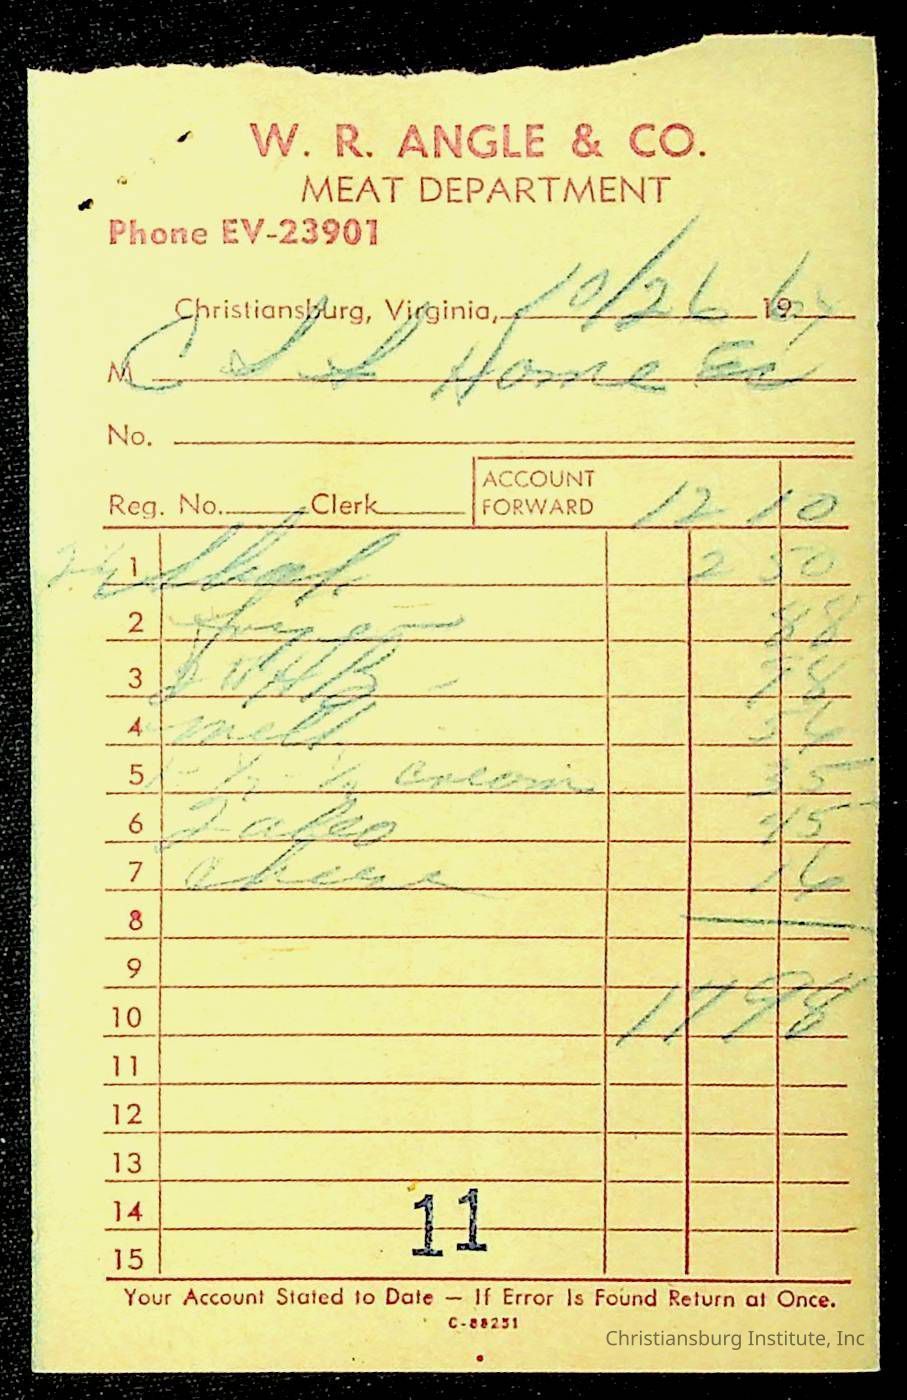 W. R. ANGLE & CO.
MEAT DEPARTMENT
Phone EV-23901
Christiansburg, Virginia, 10/26 1964
M C I I Home Ec
No.
Reg. No. Clerk
ACCOUNT FORWARD 12 10
1 2 50
2 88
3 78
4 milk
5 1/2 - 1/2 cream 35
6 45
7 cheese 16
8
9
10 17 98
11
12
13
14
15
11
Your Account Stated to Date — If Error Is Found Return at Once.
C-88251
Christiansburg Institute, Inc